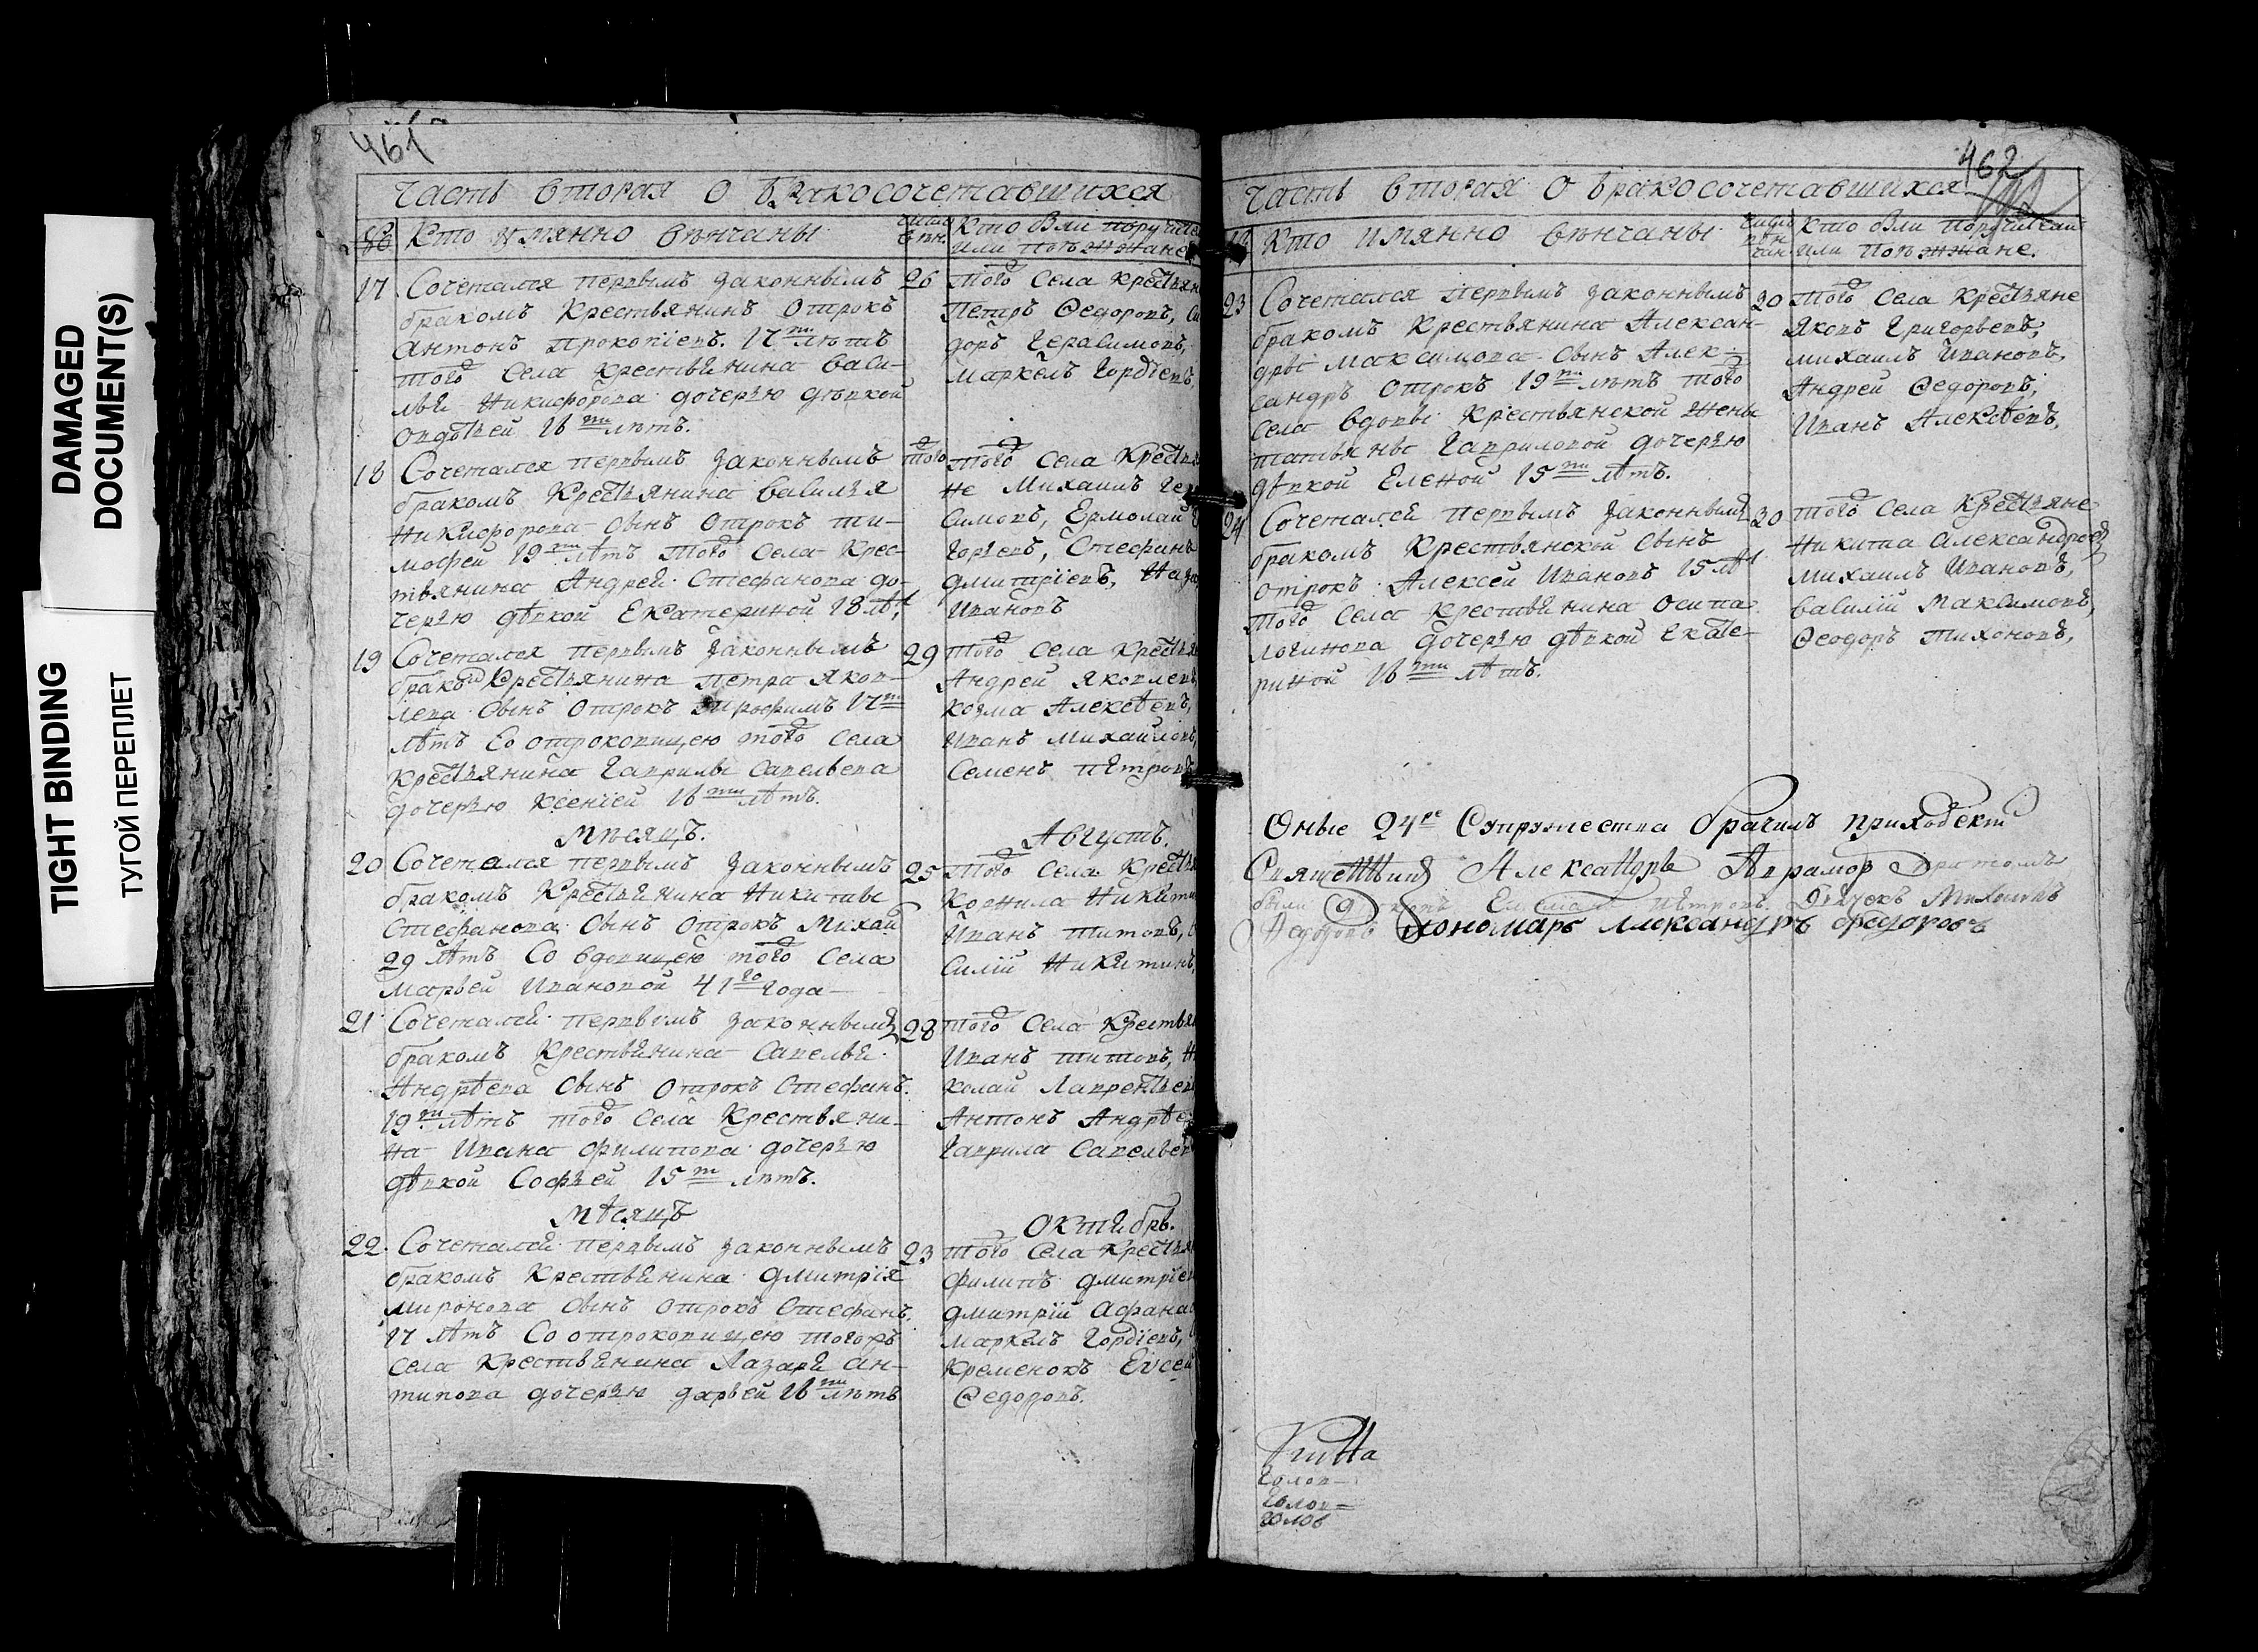 DAMAGED
DOCUMENT(S)
TIGHT BINDING
ТУГОЙ ПЕРЕПЛЕТ
461
Часть вторая о бракосочетавшихся
Кто имянно венчаны
Кто были поручители
или поезжане
17 Сочетался первымъ законнымъ
бракомъ крестьянинъ отрокъ
Антонъ Прокопіевъ. 17ти летъ
того села крестьянина Васи-
лья Никифорова дочерью девкой
Овдотьей 16ти летъ.
26 того села крестьян
Петръ Ѳедоровъ,
доръ Герасимовъ,
Маркелъ Гордѣевъ,
18 Сочетался первымъ законнымъ
бракомъ крестьянина Василья
Никифорова сынъ отрокъ Ти-
мофей 19ти лѣтъ того села крес-
тьянина Андрея Стефанова до-
черью дѣвкой Екатериной 18 лѣт
того
того села крестья
не Михаилъ Гер
симовъ, Ермолай
горьевъ, Стефанъ
Дмитріевъ, Наза
Ивановъ
19 Сочетался первымъ законнымъ
бракомъ крестьянина Петра Яков-
лева сынъ отрокъ Трофимъ 17ти
лѣтъ со отроковицею того села
крестьянина Гаврилы Савельева
дочерью Ксеніей 16ти лѣтъ.
29 того села крестья
Андрей Яковлевъ
Козма Алексѣевъ,
Иванъ Михайловъ,
Семенъ Петровъ
Мѣсяцъ. Августъ.
20 Сочетался первымъ законнымъ
бракомъ крестьянина Никиты
Стефанова сынъ отрокъ Михай
29 лѣтъ со вдовицею того села
Марьей Ивановой 41го года
25 того села крестья
Корнила Никити
Иванъ Титовъ,
силій Никитинъ,
21 Сочетался первымъ законнымъ
бракомъ крестьянина Савелья
Андрѣева сынъ отрокъ Стефанъ
19ти лѣтъ того села крестьяни-
на Ивана Филипова дочерью
дѣвкой Софьей 15ти летъ.
28 того села крестья
Иванъ Титовъ, Н
колай Лаврентьев
Антонъ Андрѣев
Гаврила Савельев
Мѣсяцъ Октябрь.
22. Сочетался первымъ законнымъ
бракомъ крестьянина Дмитрія
Миронова сынъ отрокъ Стефанъ
17 лѣтъ со отроковицею тогожъ
села крестьянина Лазаря Ан-
типова дочерью Дарьей 16ти летъ
23 того села крестья
Филипъ Дмитріев
Дмитрій Афана
Маркелъ Гордіевъ,
Кременокъ Еvсей
Ѳедоровъ.
462
Часть вторая о бракосочетавшихся
Кто имянно венчаны
Кто были поручители
или поезжане.
23 Сочетался первымъ законнымъ
бракомъ крестьянина Алексан-
дры Максимова сынъ Алек-
сандръ отрокъ 19ти лѣтъ того
села вдовы крестьянской жены
Татьяны Гавриловой дочерью
дѣвкой Еленой 15ти лѣтъ.
30 того села крестьяне
Яковъ Григорьевъ,
Михаилъ Ивановъ,
Андрей Ѳедоровъ,
Иванъ Алексѣевъ,
24 Сочетался первымъ законнымъ
бракомъ крестьянской сынъ
отрокъ Алексей Ивановъ 15 лѣт
того села крестьянина Осипа
Логинова дочерью дѣвкой Екате-
риной 16ти лѣтъ.
30 того села крестьяне
Никита Александровъ
Михаилъ Ивановъ,
Василій Максимовъ,
Ѳеодоръ Тихоновъ,
Оные 24ре супружества брачилъ приходской
Священникъ Александръ Аврамов при томъ
были Петровъ. Дьячекъ Михаилъ
Ѳедоровъ Пономарь Александръ Федоровъ